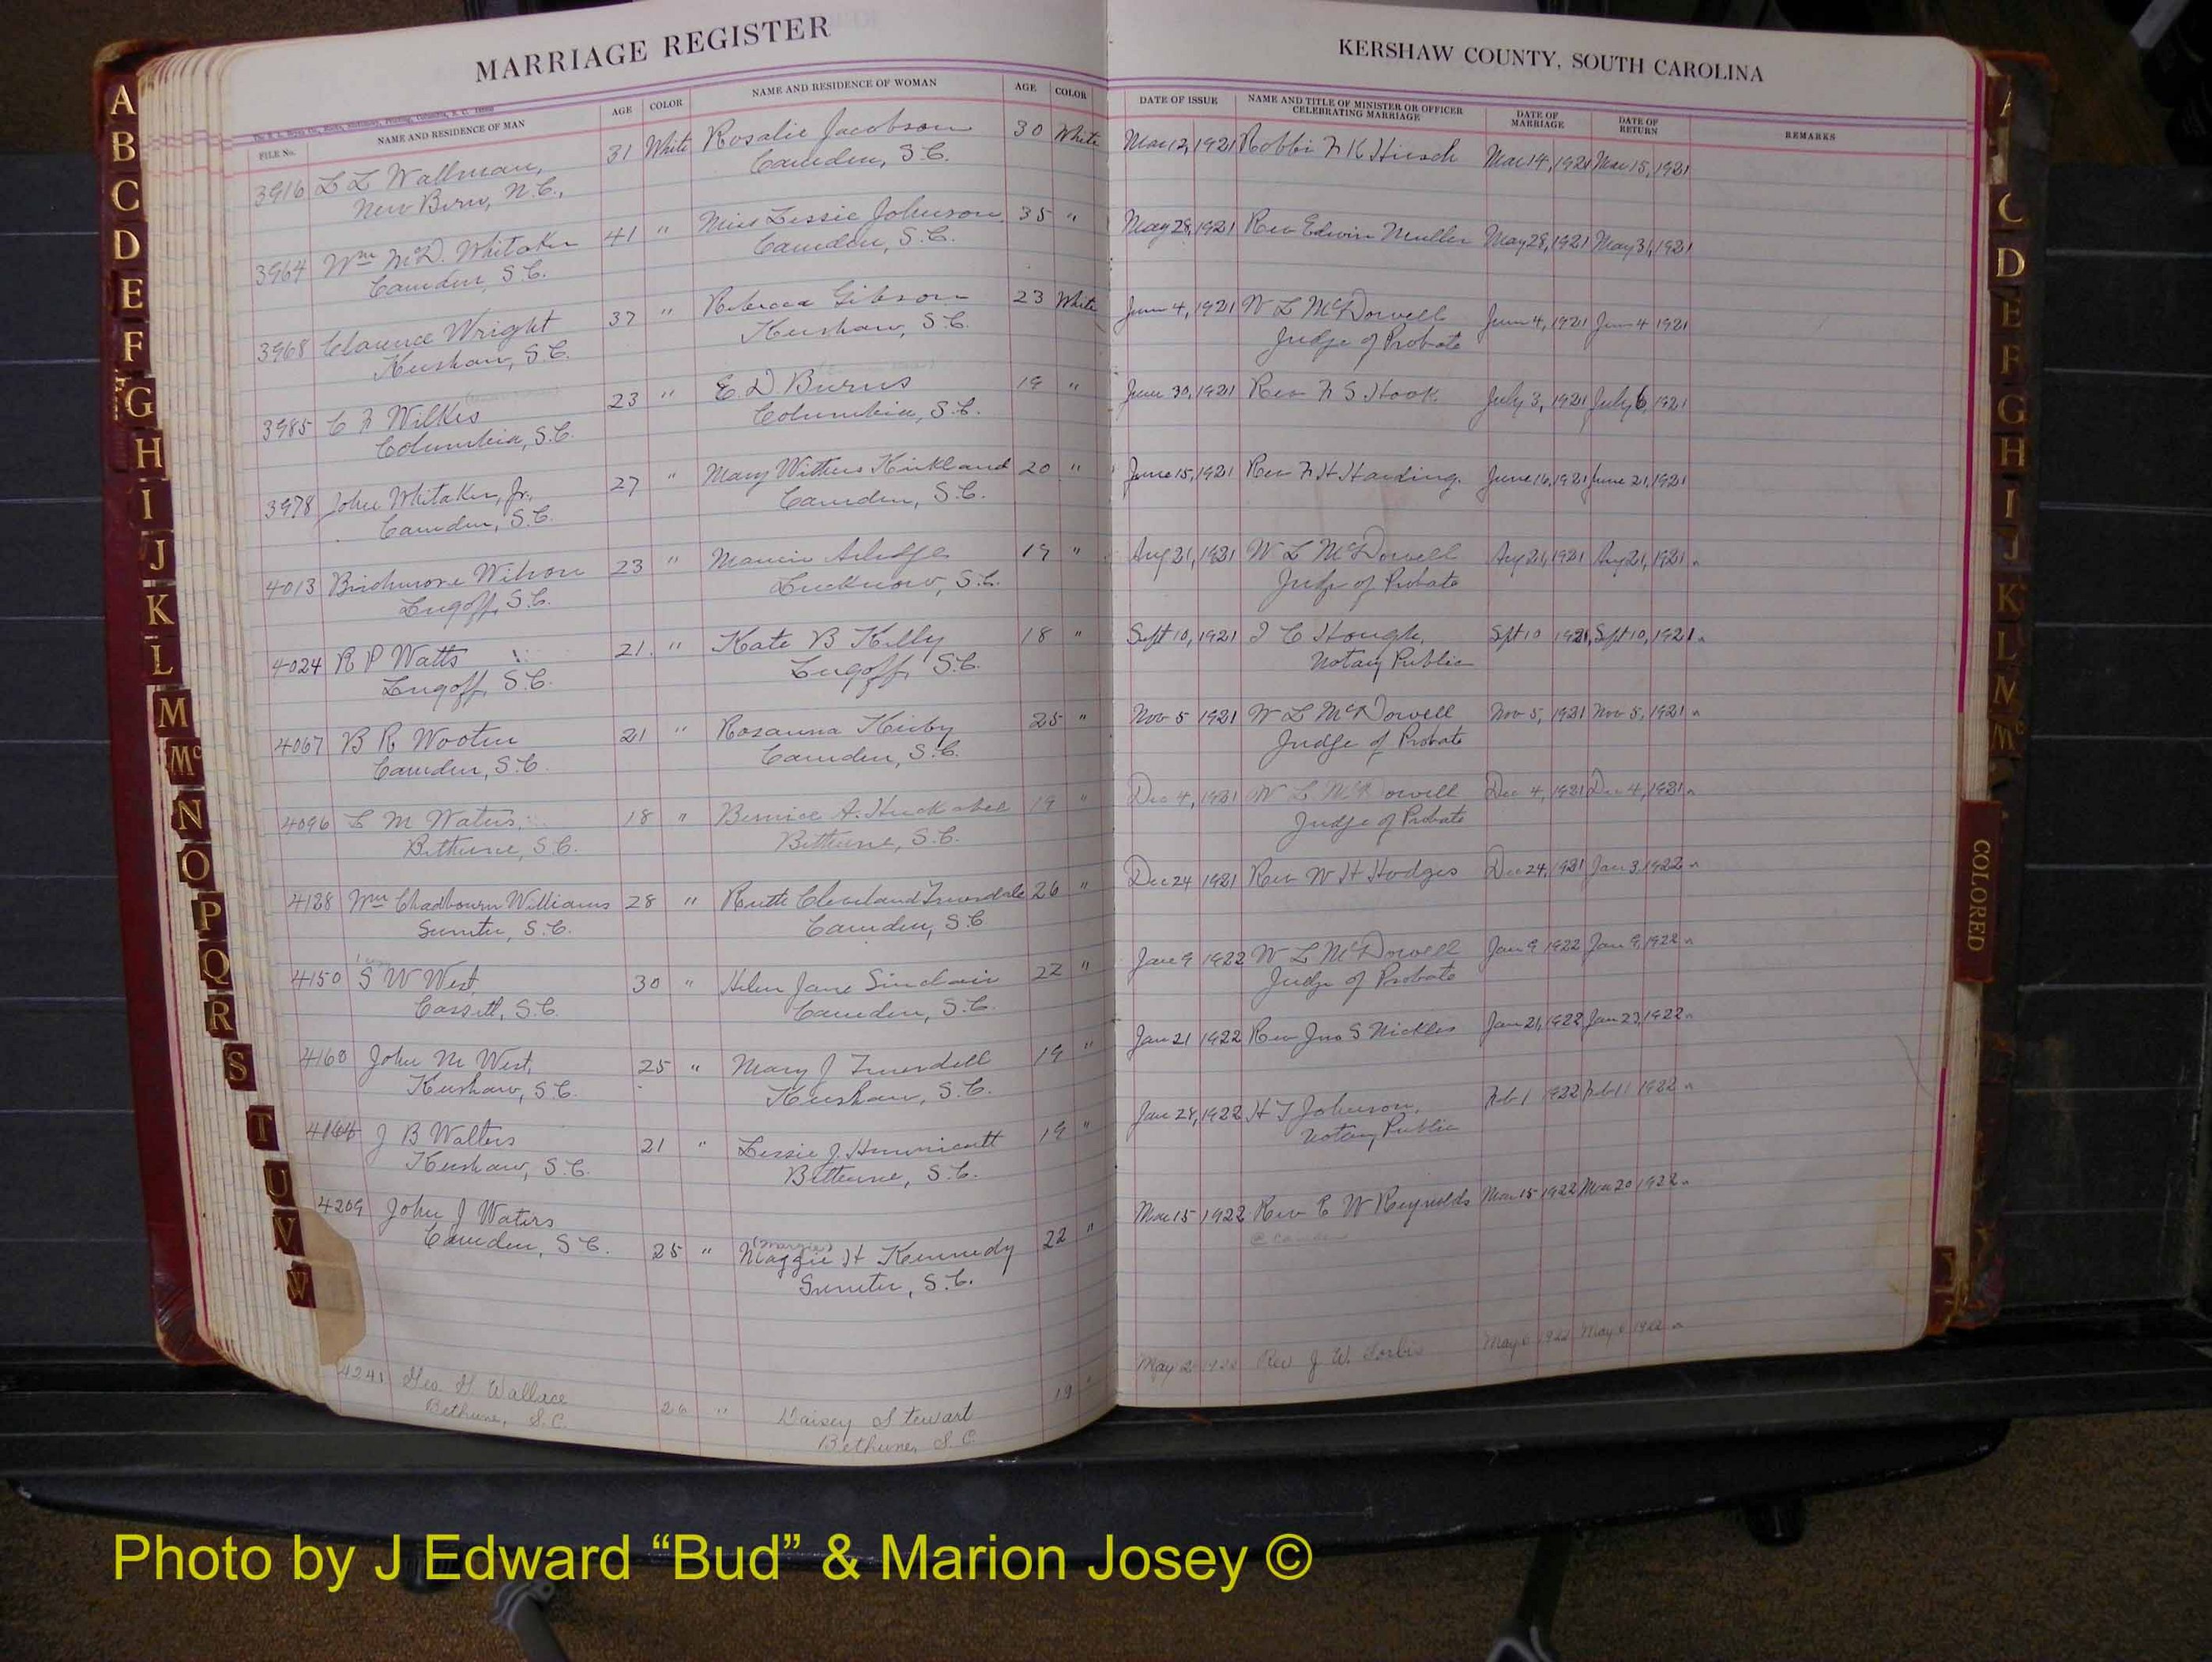 MARRIAGE REGISTER
KERSHAW COUNTY, SOUTH CAROLINA
FILE No. NAME AND RESIDENCE OF MAN AGE COLOR NAME AND RESIDENCE OF WOMAN AGE COLOR DATE OF ISSUE NAME AND TITLE OF MINISTER OR OFFICER CELEBRATING MARRIAGE DATE OF MARRIAGE DATE OF RETURN REMARKS
3916 L L Wallman, 31 White Rosalie Jacobson 30 White Mar 12, 1921 Rabbi F K Hirsch Mar 14, 1921 Mar 15, 1921
New Bern, N.C., Camden, S.C.
3964 Wm McD. Whitaker 41 " Miss Lessie Johnson 35 " May 28, 1921 Rev Edwin Muller May 28, 1921 May 31, 1921
Camden, S.C. Camden, S.C.
3968 Clarence Wright 37 " Rebecca Gibson 23 White June 4, 1921 W L McDowell June 4, 1921 June 4 1921
Kershaw, S.C. Kershaw, S.C. Judge of Probate
3985 C F Wilkes 23 " E D Burns 19 " June 30, 1921 Rev F S Hook July 3, 1921 July 6, 1921
Columbia, S.C. Columbia, S.C.
3978 John Whitaker, Jr., 27 " Mary Withers Kirkland 20 " June 15, 1921 Rev F H Harding. June 16, 1921 June 21, 1921
Camden, S.C. Camden, S.C.
4013 Birchmore Wilson 23 " Mamie Arledge 19 " Aug 21, 1921 W L McDowell Aug 21, 1921 Aug 21, 1921
Lugoff, S.C. Lucknow, S.C. Judge of Probate
4024 R P Watts 21. " Kate B Kelly 18 " Sept 10, 1921 J C Hough, Spt 10 1921, Spt 10, 1921
Lugoff, S.C. Lugoff, S.C. Notary Public
4067 B R Wooten 21 " Rosanna Kirby 25 " Nov 5 1921 W L McDowell Nov 5, 1921 Nov 5, 1921
Camden, S.C. Camden, S.C. Judge of Probate
4096 L M Waters, 18 " Bernice A. Huckabee 19 " Dec 4, 1921 W L McDowell Dec 4, 1921 Dec 4, 1921
Bethune, S.C. Bethune, S.C. Judge of Probate
4128 Wm Chadbourn Williams 28 " Ruth Cleveland Truesdale 26 " Dec 24 1921 Rev W H Hodges Dec 24, 1921 Jan 3, 1922
Sumter, S.C. Camden, S.C
4150 S W West 30 " Helen Jane Sinclair 22 " Jan 9 1922 W L McDowell Jan 9 1922 Jan 9, 1922
Cassatt, S.C. Camden, S.C. Judge of Probate
4160 John M West, 25 " Mary J Truesdell 19 " Jan 21 1922 Rev Jno S Nickles Jan 21, 1922 Jan 23, 1922
Kershaw, S.C. Kershaw, S.C.
4164 J B Walters 21 " Lessie J. Hunnicutt 19 " Jan 28, 1922 H T Johnson, Feb 1 1922 Feb 11 1922
Kershaw, S.C. Bethune, S.C. Notary Public
4209 John J Waters 25 " (Margie) Maggie H Kennedy 22 " Mar 15 1922 Rev C W Reynolds Mar 15 1922 Mar 20 1922
Camden, S.C. Sumter, S.C.
4241 Geo. G. Wallace 26 " Daisey Stewart 19 " May 2 Rev J. W. May 6 1922 May 6 1922
Bethune, S.C. Bethune, S.C.
A
B
C
D
E
F
G
H
I
J
K
L
M
Mc
N
O
P
Q
R
S
T
U
V
W
C
D
E
F
G
H
I
J
K
L
M
Mc
COLORED
Photo by J Edward “Bud” & Marion Josey ©